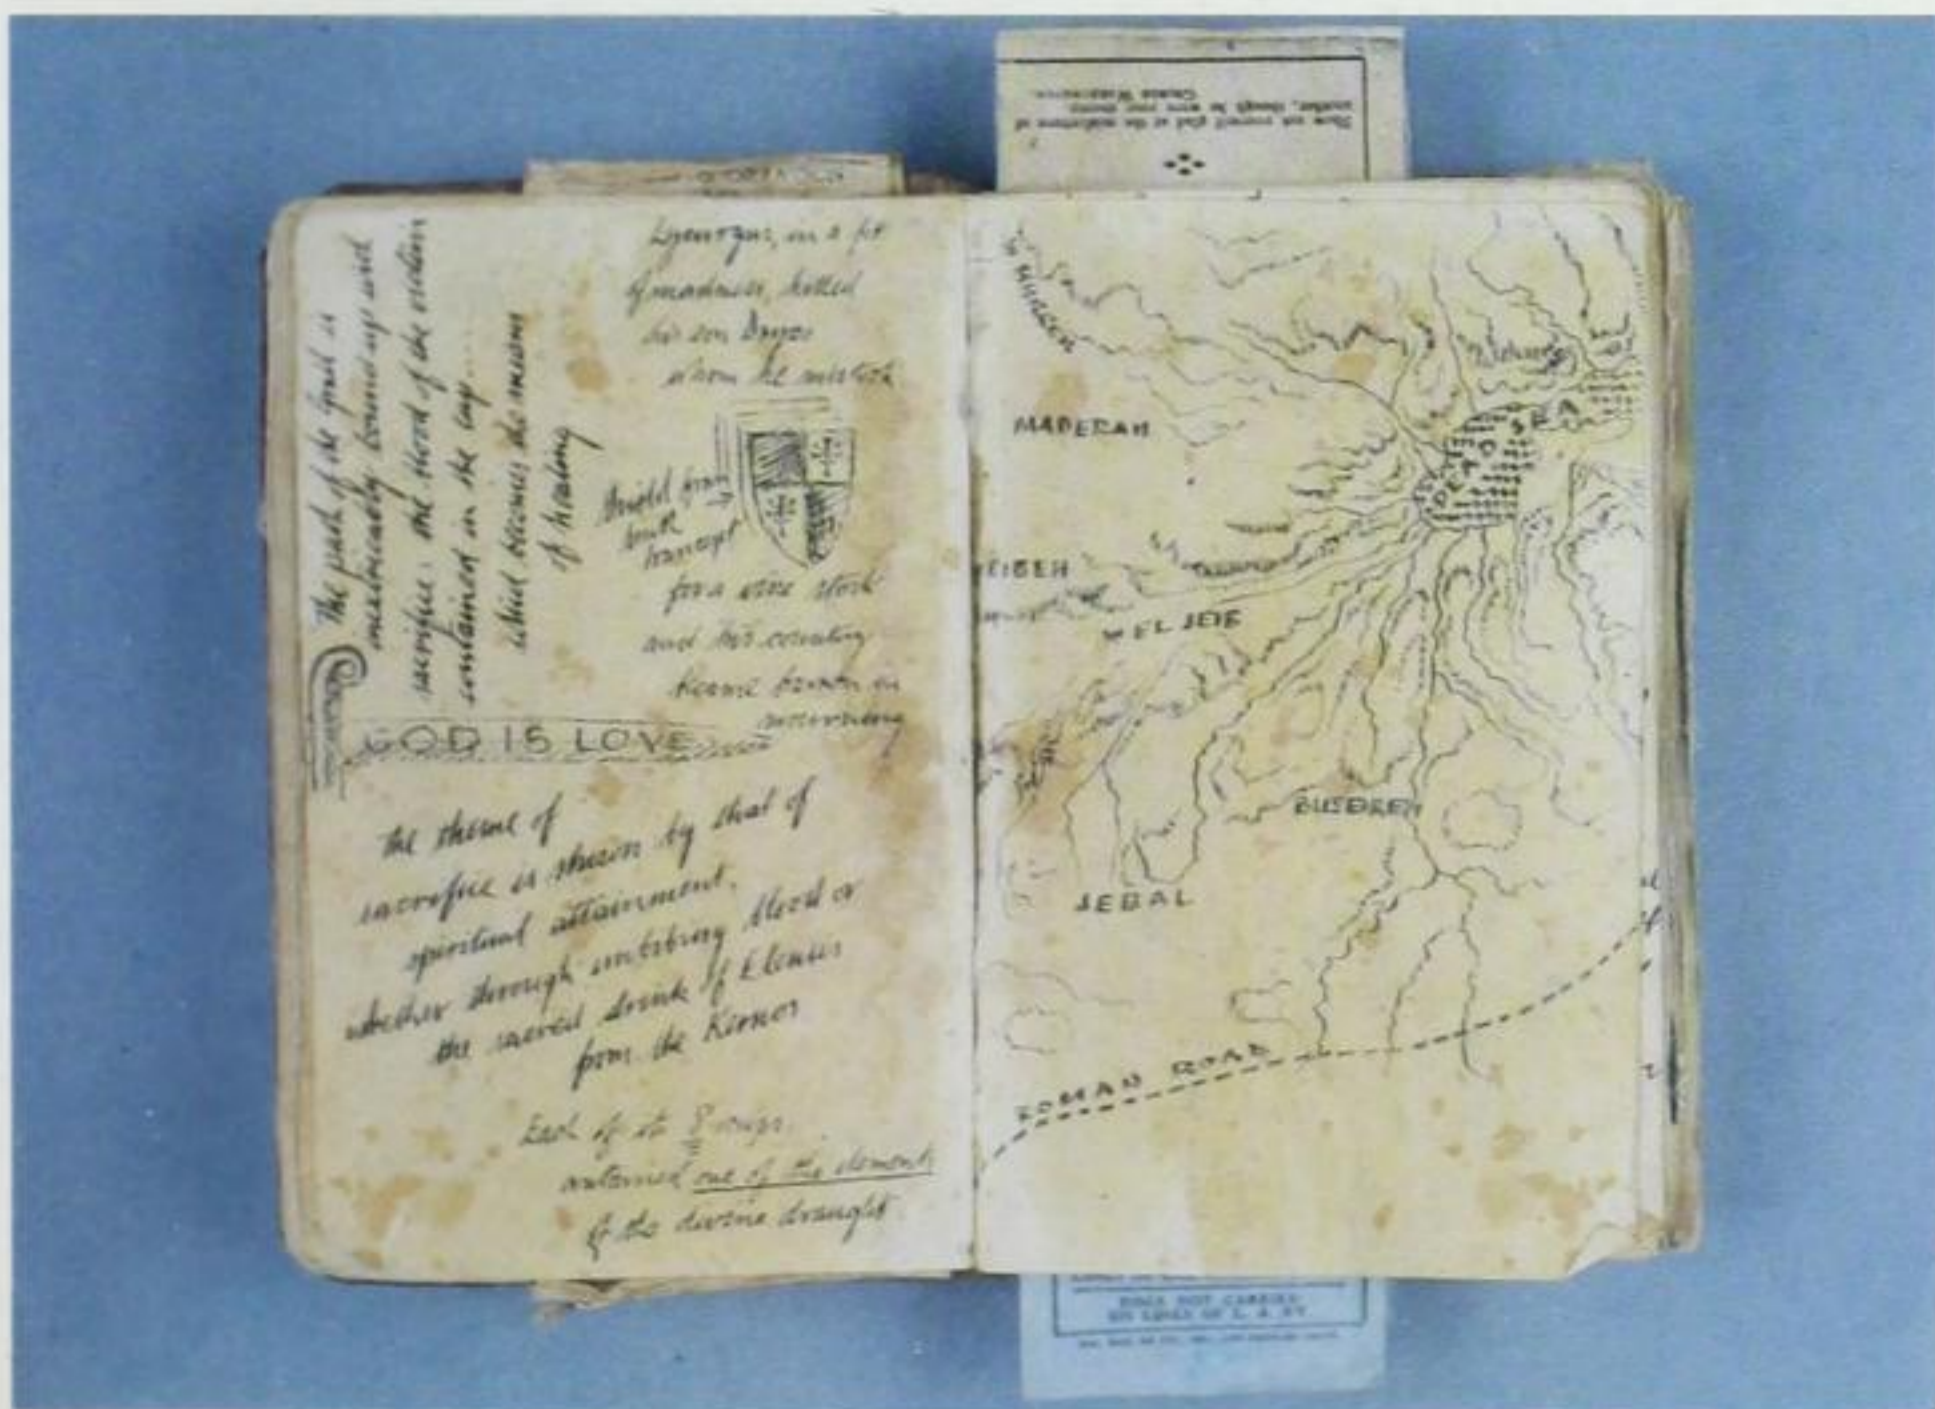 Show not yourself glad at the misfortune of
another, though he were your enemy.
George Washington.
The path of the Grail is
inextricably bound up with
sacrifice: the blood of the victim
contained in the cup....
which becomes the means
of healing
Lycurgus, in a fit
of madness, killed
his son Dryas
whom he mistook
shield from
transept
for a vine stock
and his country
became barren in
mourning
GOD IS LOVE
the theme of
sacrifice is shown by that of
spiritual attainment.
whether through imbibing blood or
the sacred drink of Eleusis
from the Kernos
Each of its 8 cups
contained one of the elements
of the divine draught
MADERAH
DEAD SEA
EIBEH
EL JEIB
BUSEREH
JEBAL
ROMAN ROAD